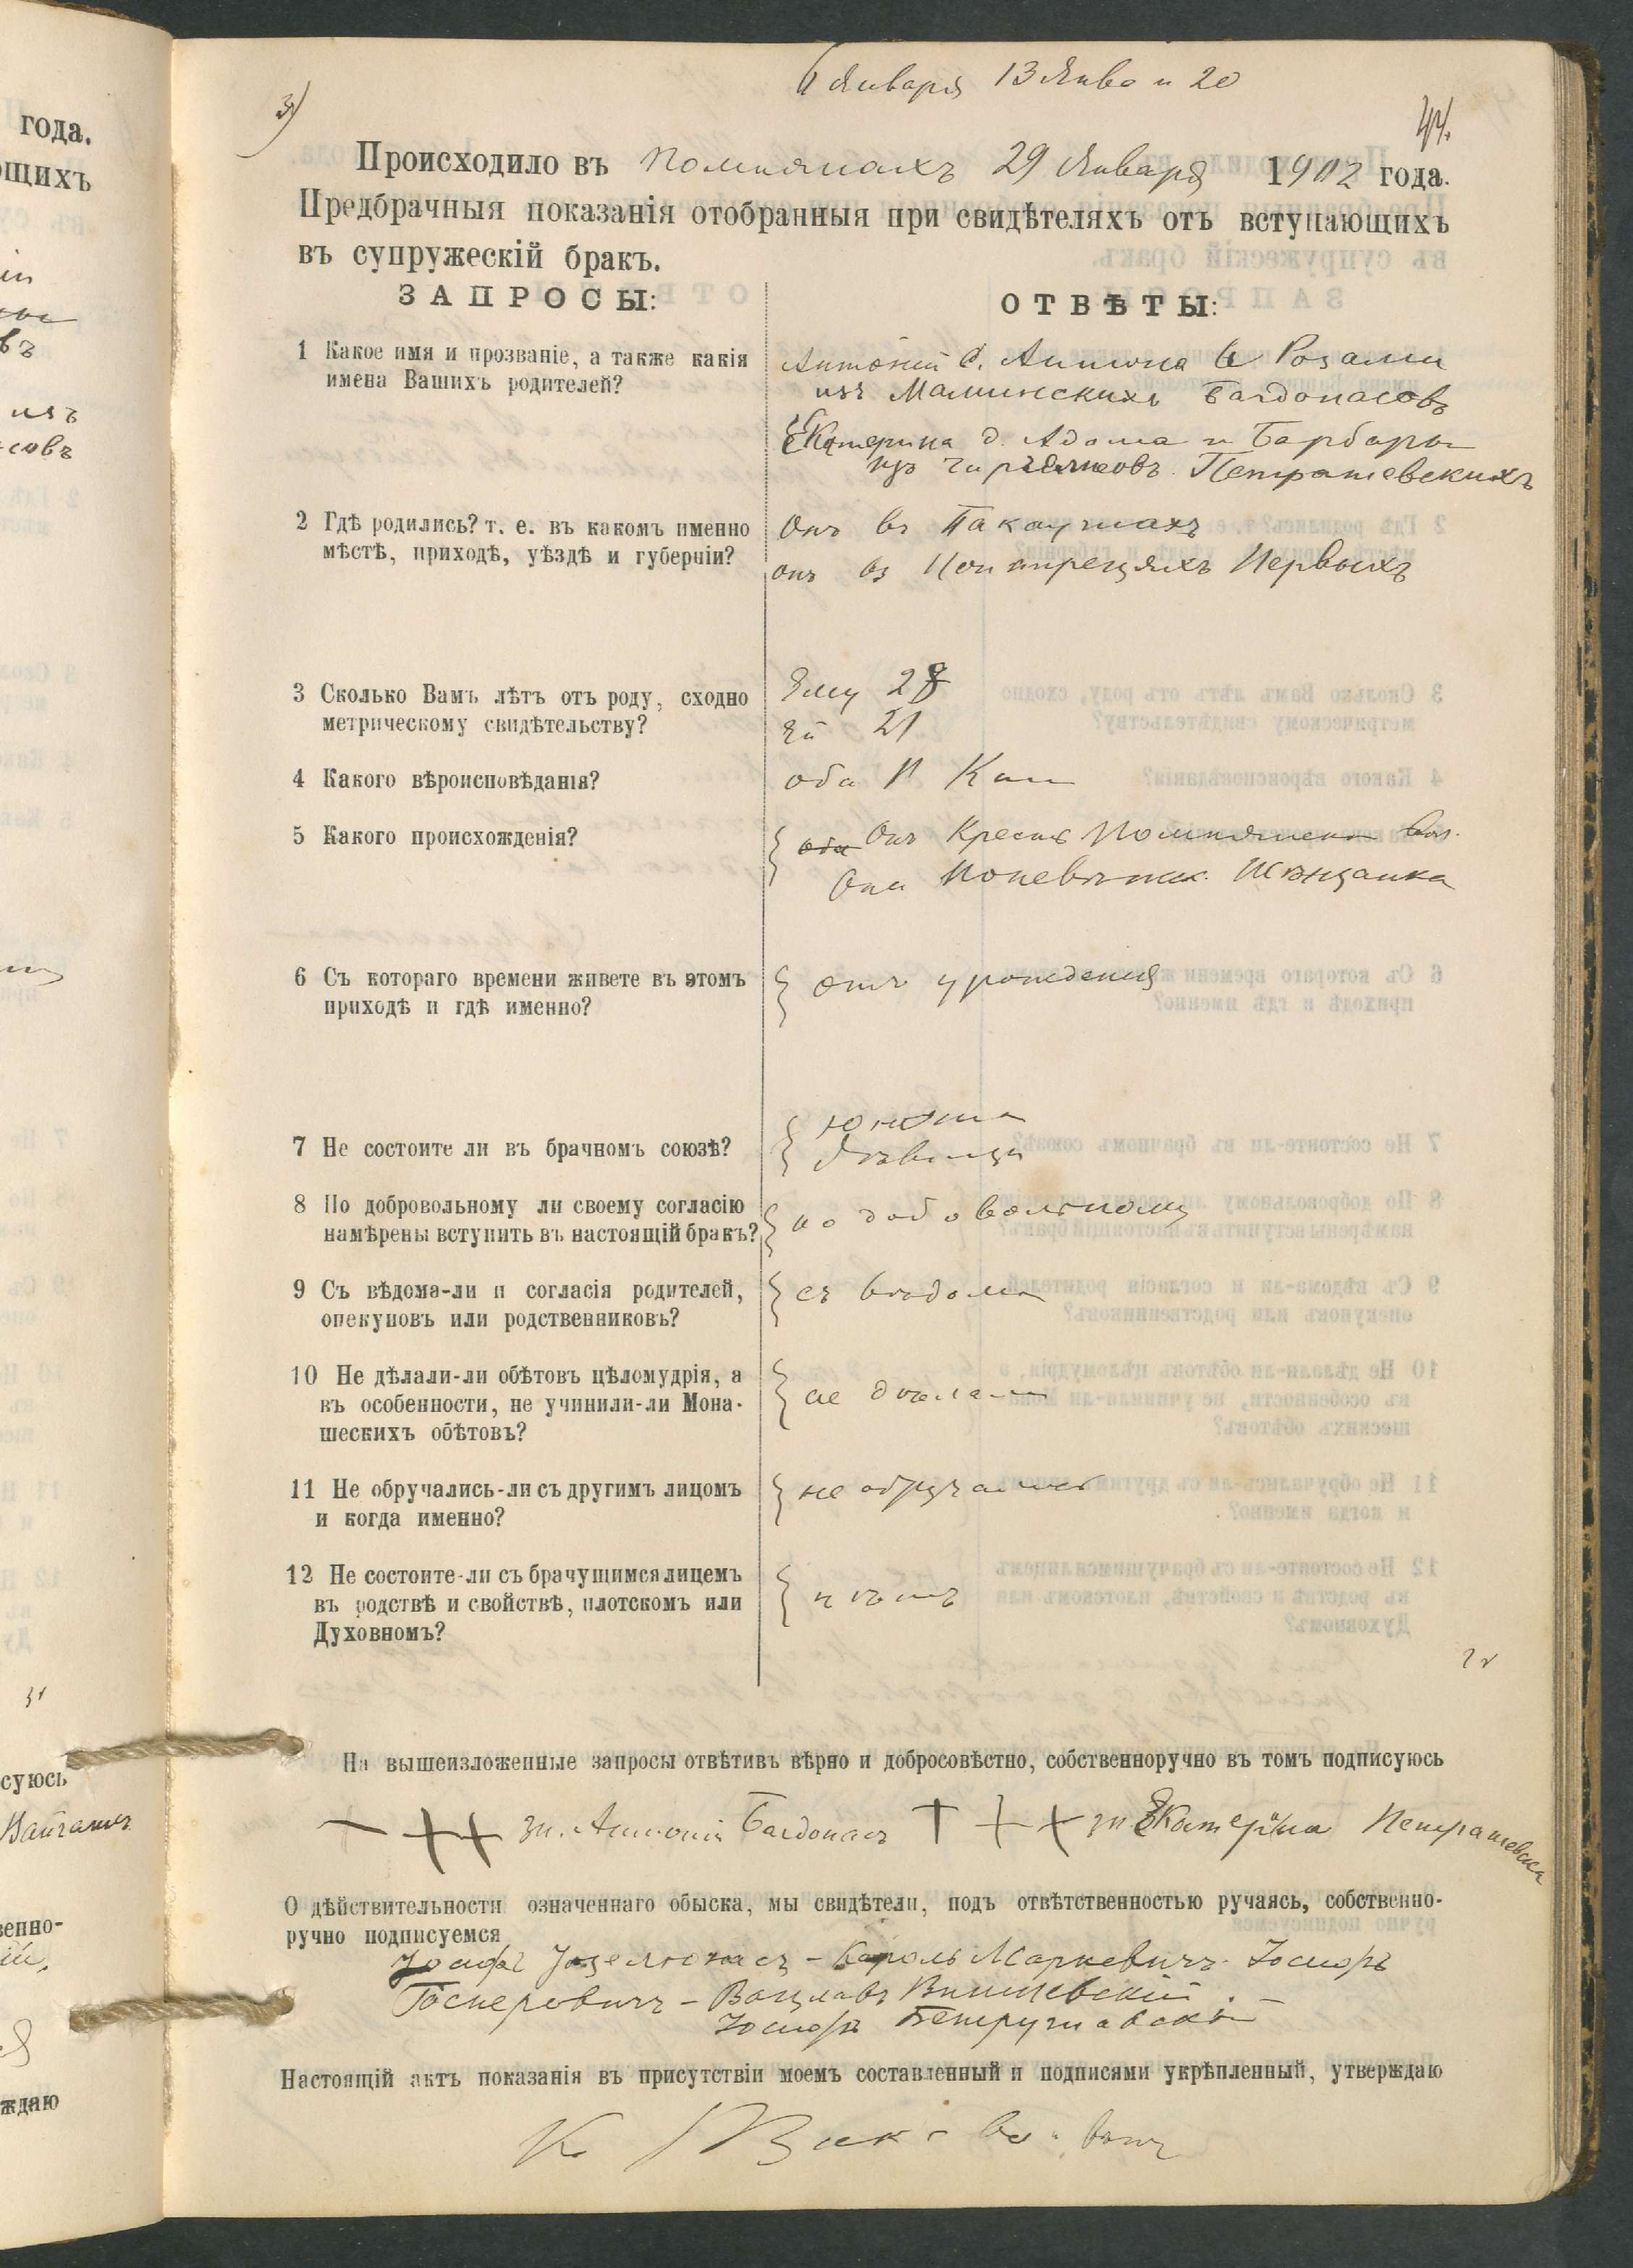 6 Января 13 Янва и 20
3)
44.
Происходило въ Помпянахъ 29 Января 1902 года.
Предбрачныя показанія отобранныя при свидѣтеляхъ отъ вступающихъ
въ супружескій бракъ.
ЗАПРОСЫ:
ОТВѢТЫ:
1 Какое имя и прозваніе, а также какія
имена Вашихъ родителей?
Антоній с. Антона и Розалии
изъ Малинскихъ Багдонасовъ
Екатерина д. Адама и Барбары
изъ Петрашевскихъ
2 Гдѣ родились? т. е. въ какомъ именно
мѣстѣ, приходѣ, уѣздѣ и губерніи?
Онъ въ
она въ Первыхъ
3 Сколько Вамъ лѣтъ отъ роду, сходно
метрическому свидѣтельству?
Ему 28
Ей 21
4 Какого вѣроисповѣданія?
оба Р Кат
5 Какого происхожденія?
оба Онъ Крестн Помпянской вол.
Она Поневѣжск. Мѣщанка
6 Съ котораго времени живете въ этомъ
приходѣ и гдѣ именно?
отъ урождения
7 Не состоите ли въ брачномъ союзѣ?
юноша
дѣвица
8 По добровольному ли своему согласію
намѣрены вступить въ настоящій бракъ?
по добовольному
9 Съ вѣдома-ли и согласія родителей,
опекуновъ или родственниковъ?
съ вѣдома
10 Не дѣлали-ли обѣтовъ цѣломудрія, а
въ особенности, не учинили-ли Мона-
шескихъ обѣтовъ?
не дѣлали
11 Не обручались-ли съ другимъ лицомъ
и когда именно?
не обручались
12 Не состоите-ли съ брачущимся лицемъ
въ родствѣ и свойствѣ, плотскомъ или
Духовномъ?
нѣтъ
На вышеизложенные запросы отвѣтивъ вѣрно и добросовѣстно, собственноручно въ томъ подписуюсь
зн. Антоній Багдонасъ зн. Екатерина Петрашевска
О дѣйствительности означеннаго обыска, мы свидѣтели, подъ отвѣтственностью ручаясь, собственно-
ручно подписуемся
Іосифъ Кароль Маркевичъ Іосифъ
Госперовичъ – Вацлавъ Вишневскій –
Іосифъ
Настоящій актъ показанія въ присутствіи моемъ составленный и подписями укрѣпленный, утверждаю